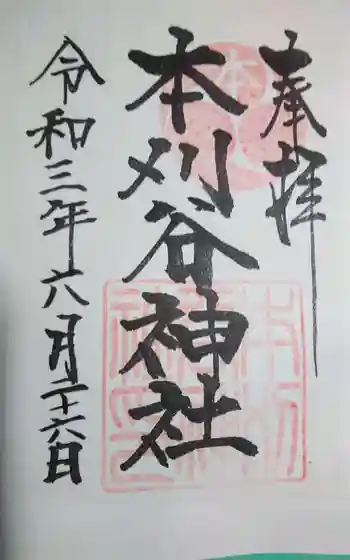 奉拝
本刈谷神社
令和三年六月二十六日
本